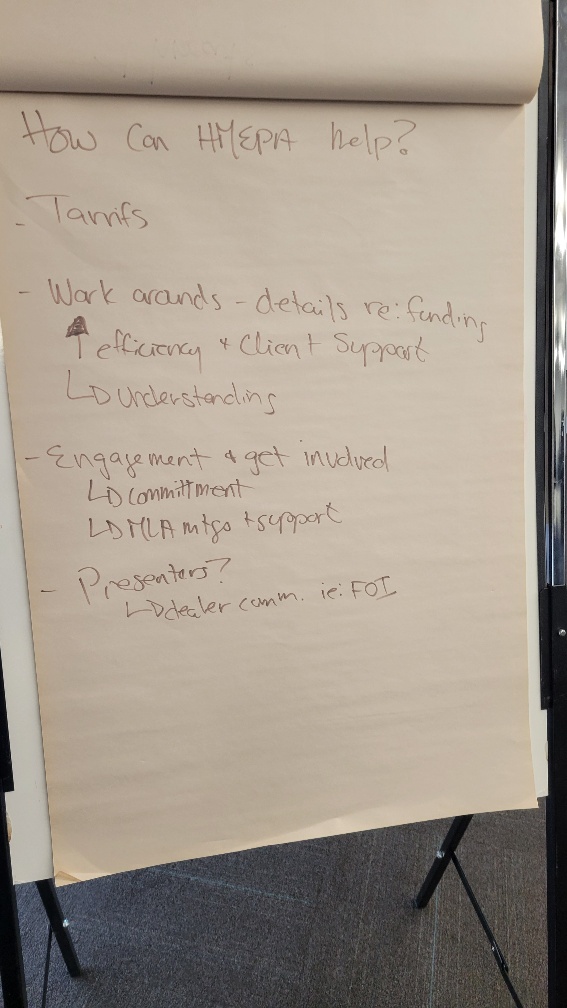 How Can HMEPA help?
- Tarrifs
- Work arounds - details re: funding
↑ efficiency + Client Support
↳ Understanding
- Engagement + get involved
↳ committment
↳ MLA mtgs + support
- Presenters?
↳ dealer comm. ie: FOI